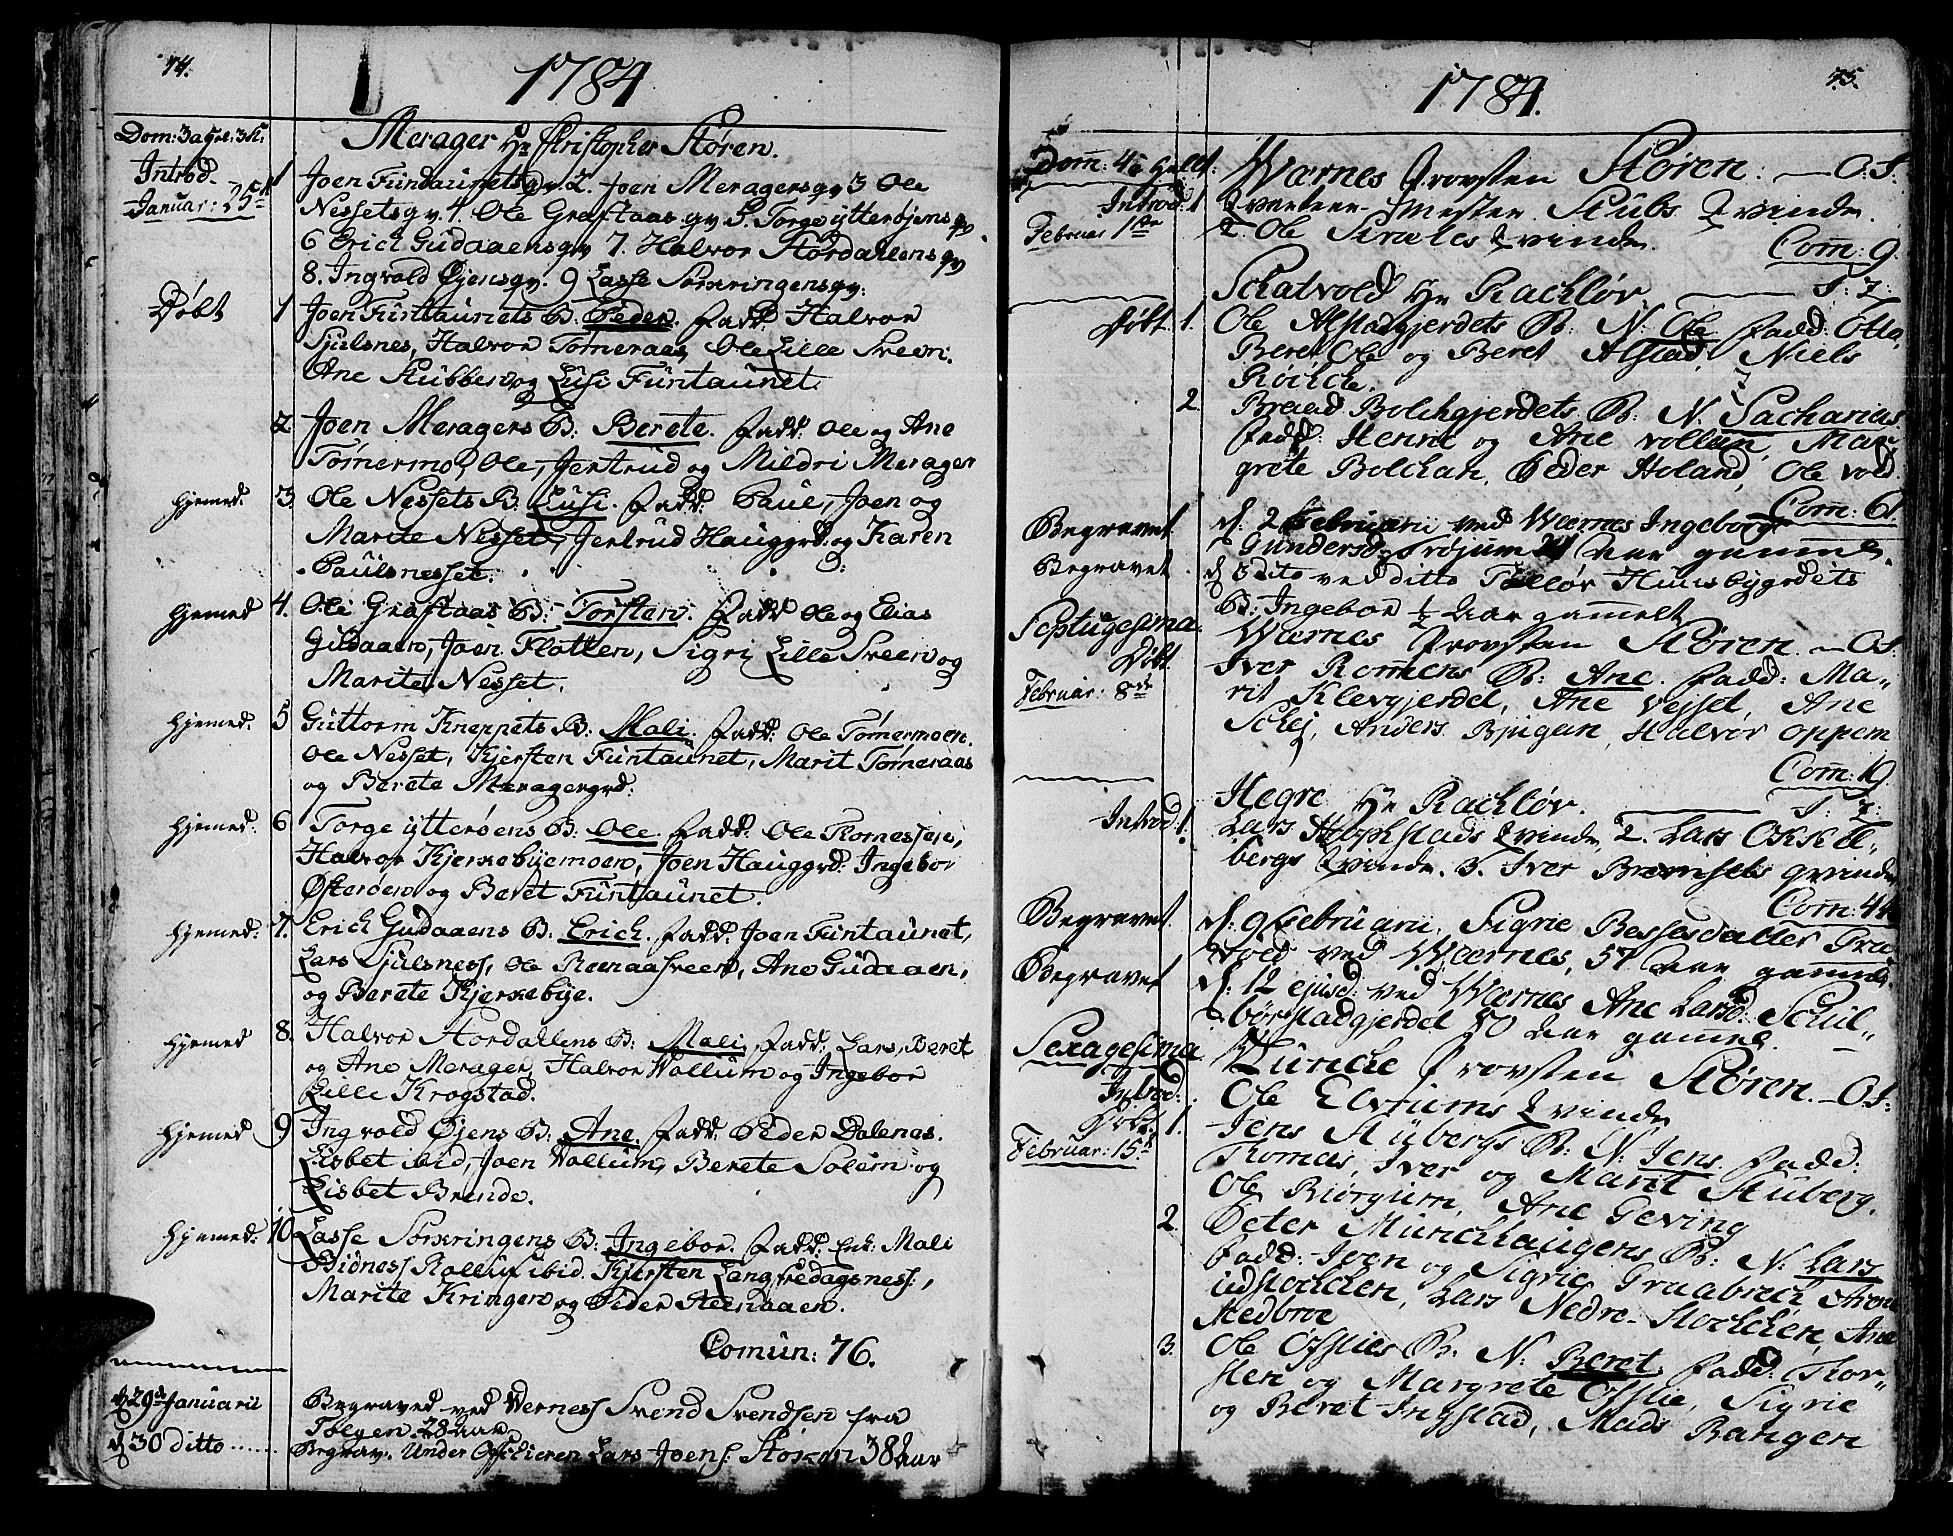 74.
1784
Dom: 3 a Epi: 3 R.
Introd.
Januar: 25de
Merager Hr Christopher Støren.
1 Joen Funtaunets qv. 2. Joen Meragers qv 3 Ole
Nessets qv. 4. Ole Graftaas qv 5. Torge ytterøjens qv
6 Erich Gudaaens qv 7. Halvor Stordalens qv
8. Ingvold Øjens qv. 9 Lasse Sorkringens qv:
Døbt 1 Joen Funtaunets B. Peder. Fadd: Halvor
Sjulsnes, Halvor Tømeraas, Ole Lille Sveen.
Ane Stubben og Lusi Funtaunet.
2 Joen Meragers B: Berete. Fadd: Ole og Ane
Tømermo, Ole, Jertrud og Mildri Merager
hjemed. 3. Ole Nessets B: Lusi. Fadd: Paul, Joen og
Marite Nesset, Jertrud Hauggrd: og Karen
Paulsnesset.
hjemed 4. Ole Graftaas B: Torsten. Fadd Ole og Elias
Gudaaen, Joen Flotten, Sigri Lille Sveen og
Marite Nesset.
hjemed. 5 Guttorm Kneppets B: Mali. Fadd: Ole Tømermoen.
Ole Nesset, Kjersten Funtaunet, Marit Tømeraas
og Berete Meragergrd:
hjemed. 6 Torge ytterøens B: Ole. Fadd: Ole Thomessen,
Halvor Kjerkebyemoen, Joen Hauggrd: Ingebor
Østerøen og Beret Funtaunet.
hjemed. 7. Erich Gudaaens B: Erich. Fadd: Joen Funtaunet,
Lars Sjulsness, Ole Roenaasveen, Ane Gudaaen,
og Berete Kjerkebye.
hjemed 8. Halvor Stordallens B: Mali, Fadd: Lars, Beret
og Ane Merager, Halvor Wollum og Ingebor
Lille Krogstad.
hjemed 9 Ingvold Øjens B: Ane. Fadd: Peder Dalenas.
Lisbet ibid, Joen Wollum, Berete Solem og
Lisbet Brende.
hjemed. 10. Lasse Sorkringens B: Ingebor. Fadd: Enk: Mali
Bidness Rolluf ibid. Kjersten Langvedagsness,
Marite Kringen og Peder Steenaaen.
Comun: 76.
d 29de Januarii Begraved ved Werness Svend Svendsen fra
Tølgen 28 Aar
d 30 ditto ...... Begrav. Under Officieren Lars Joens: 38 Aar
75.
1784.
Dom: 4 a
Introd: 1
Februar 1ste
Wærnes Provsten Støren. — O.S.
Qvarteer-Mester Stubs Qvinde.
2. Ole Qvinde. Com: 9.
Schatvold Hr Rachløv. — S: T:
Døbt 1. Ole Alstadgjerdets B: N: Ole Fadd: Otto,
Beret Ole og Beret Alstad, Niels
Røkke.
2. Braad Bolchgjerdets B: N: Sacharias
Fadd: Henric og Ane Vollan, Mar
grete Bolchan, Peder Holand, Ole vold.
Com: 61.
Begravet d: 2 Februarii ved Wærnes Ingeborg
Gundersd: Trøjum 24 Aar gammel.
Begravet d 3 dito ved ditto Tolløv Huusbygrdets
B: Ingebor ½ Aar gammelt
Septugesima Wærnes Provsten Støren. — O.S.
Døbt Iver Rommens B: Ane. Fadd: Ma„
Februar: 8de rit Klevgjerdet, Ane Vejset, Ane
Schej, Anders Bjugan, Halvor Oppem
Com: 19.
Hegre Hr Rachløv. — S: T:
Introd: 1. Lars Hophstads Qvinde, 2. Lars Okkel„
bergs Qvinde. 3. Iver qvinde
Com: 44
Begravet. d: 9 Februarii, Sigrie Bessesdatter
vold ved Wærnes, 57 Aar gammel.
Begravet d: 12 ejusd: ved Wærnes Ane Larsd: Schil„
børstadgjerdet 50 Aar gammel.
Sexagesima Lunche Provsten Støren. — O.S:
Introd: Ole Elvrums Qvinde
Døbt. 1. Jens Stubergs B: N: Jens. Fadd:
Februar: 15de Thomas, Iver og Marit Stuberg,
Ole Biørgum, Ane Geving
2. Peter Munchhaugens B: N: Lars
Fadd: Joen og Sigrie Gruabrech, Arne
udstochchen, Lars Nedre-Stochchen, Ane
Medbroe
3. Ole Øfsties B. N: Beret. Fadd: Thor„
sten og Margrete Øfstie, Sigrie
og Beret Ingstad, Mads Bangen